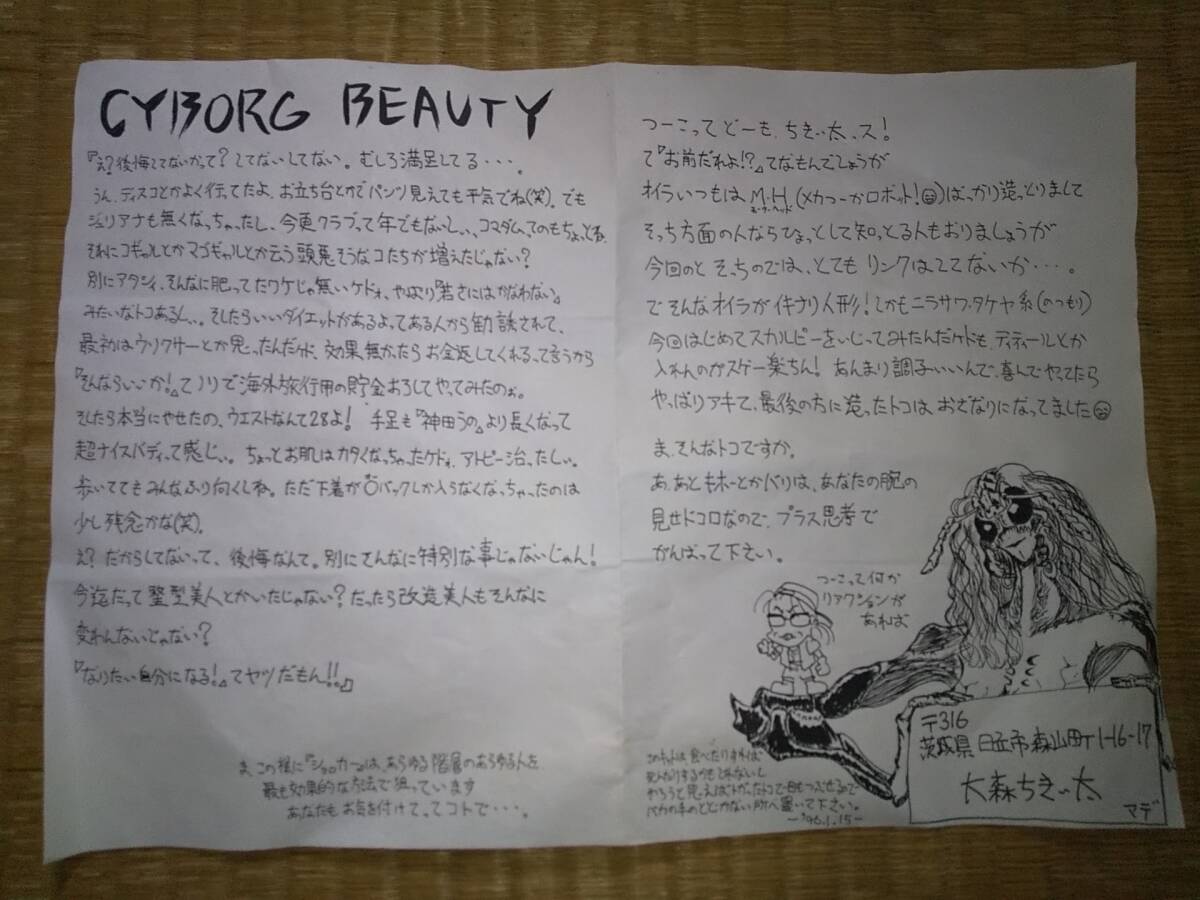 CYBORG BEAUTY
『え?後悔してないかって?してないしてない。むしろ満足してる・・・。
うん、ディスコとかよく行ってたよ。お立ち台とかでパンツ見えても平気でね(笑)。でも
ジュリアナも無くなっちゃったし、今更クラブって年でもないしぃ、コマダムってのもちょっとねぇ
それにコギャルとかマゴギャルとか云う頭悪そうなコたちが増えたじゃない?
別にアタシィ、そんなに肥ってたワケじゃ無いケドォ、やっぱり『若さにはかなわない』
みたいなトコあるしぃ。そしたらいいダイエットがあるよってある人から勧誘されて、
最初はウソクサーとか思ったんだけど、効果無かったらお金返してくれるって言うから
『そんならいいか!』てノリで海外旅行用の貯金おろしてやってみたのぉ。
そしたら本当にやせたの、ウエストなんて28よ! 手足も『神田うの』より長くなって
超ナイスバディって感じぃ。ちょっとお肌はカタくなっちゃったケドォ、アトピー治ったしぃ。
歩いててもみんなふり向くしね。ただ下着がOバックしか入らなくなっちゃったのは
少し残念かな(笑)。
え? だからしてないって、後悔なんて。別にそんなに特別な事じゃないじゃん!
今迄だって整型美人とかいたじゃない?だったら改造美人もそんなに
変わんないじゃない?
『なりたい自分になる!』てヤツだもん!!』
ま、この様に『ショッカー』は、あらゆる階層のあらゆる人を
最も効果的な方法で狙っています
あなたもお気を付けて、ってコトで・・・・。
つーこってどーも、ちきぃ太、ス!
て『お前だれよ!?』てなもんでしょうが
オイラいつもは M.H.(メカつーかロボット!)ばっかり造っとりまして
モーターヘッド
そっち方面の人ならひょっとして知っとる人もおりましょうが
今回のと そっちのでは、とても リンクはしてないか・・・・。
で そんなオイラがイキナリ人形!しかもニラサワ・タケヤ系(のつもり)
今回はじめてスカルピーをいじってみたんだケドも、ディティールとか
入れんのがスゲー楽ちん! あんまり調子いいんで、喜んでやってたら
やっぱりアキて、最後の方に造ったトコは おざなりになってました
ま、そんなトコですか。
あ、あともホーとかバリは、あなたの腕の
見せドコロなので、プラス思考で
がんばって下さい。
つーこって何か
リアクションが
あれば
〒316
茨城県 日立市 森山町 1-16-17
大森ちきぃ太
マデ
このキットは 食べたりすれば
死んだりするかもしれないし
やろうと思えばトガッたトコで目もつぶせるので
バカの手のとどかない所へ置いて下さい。
－'96.1.15－